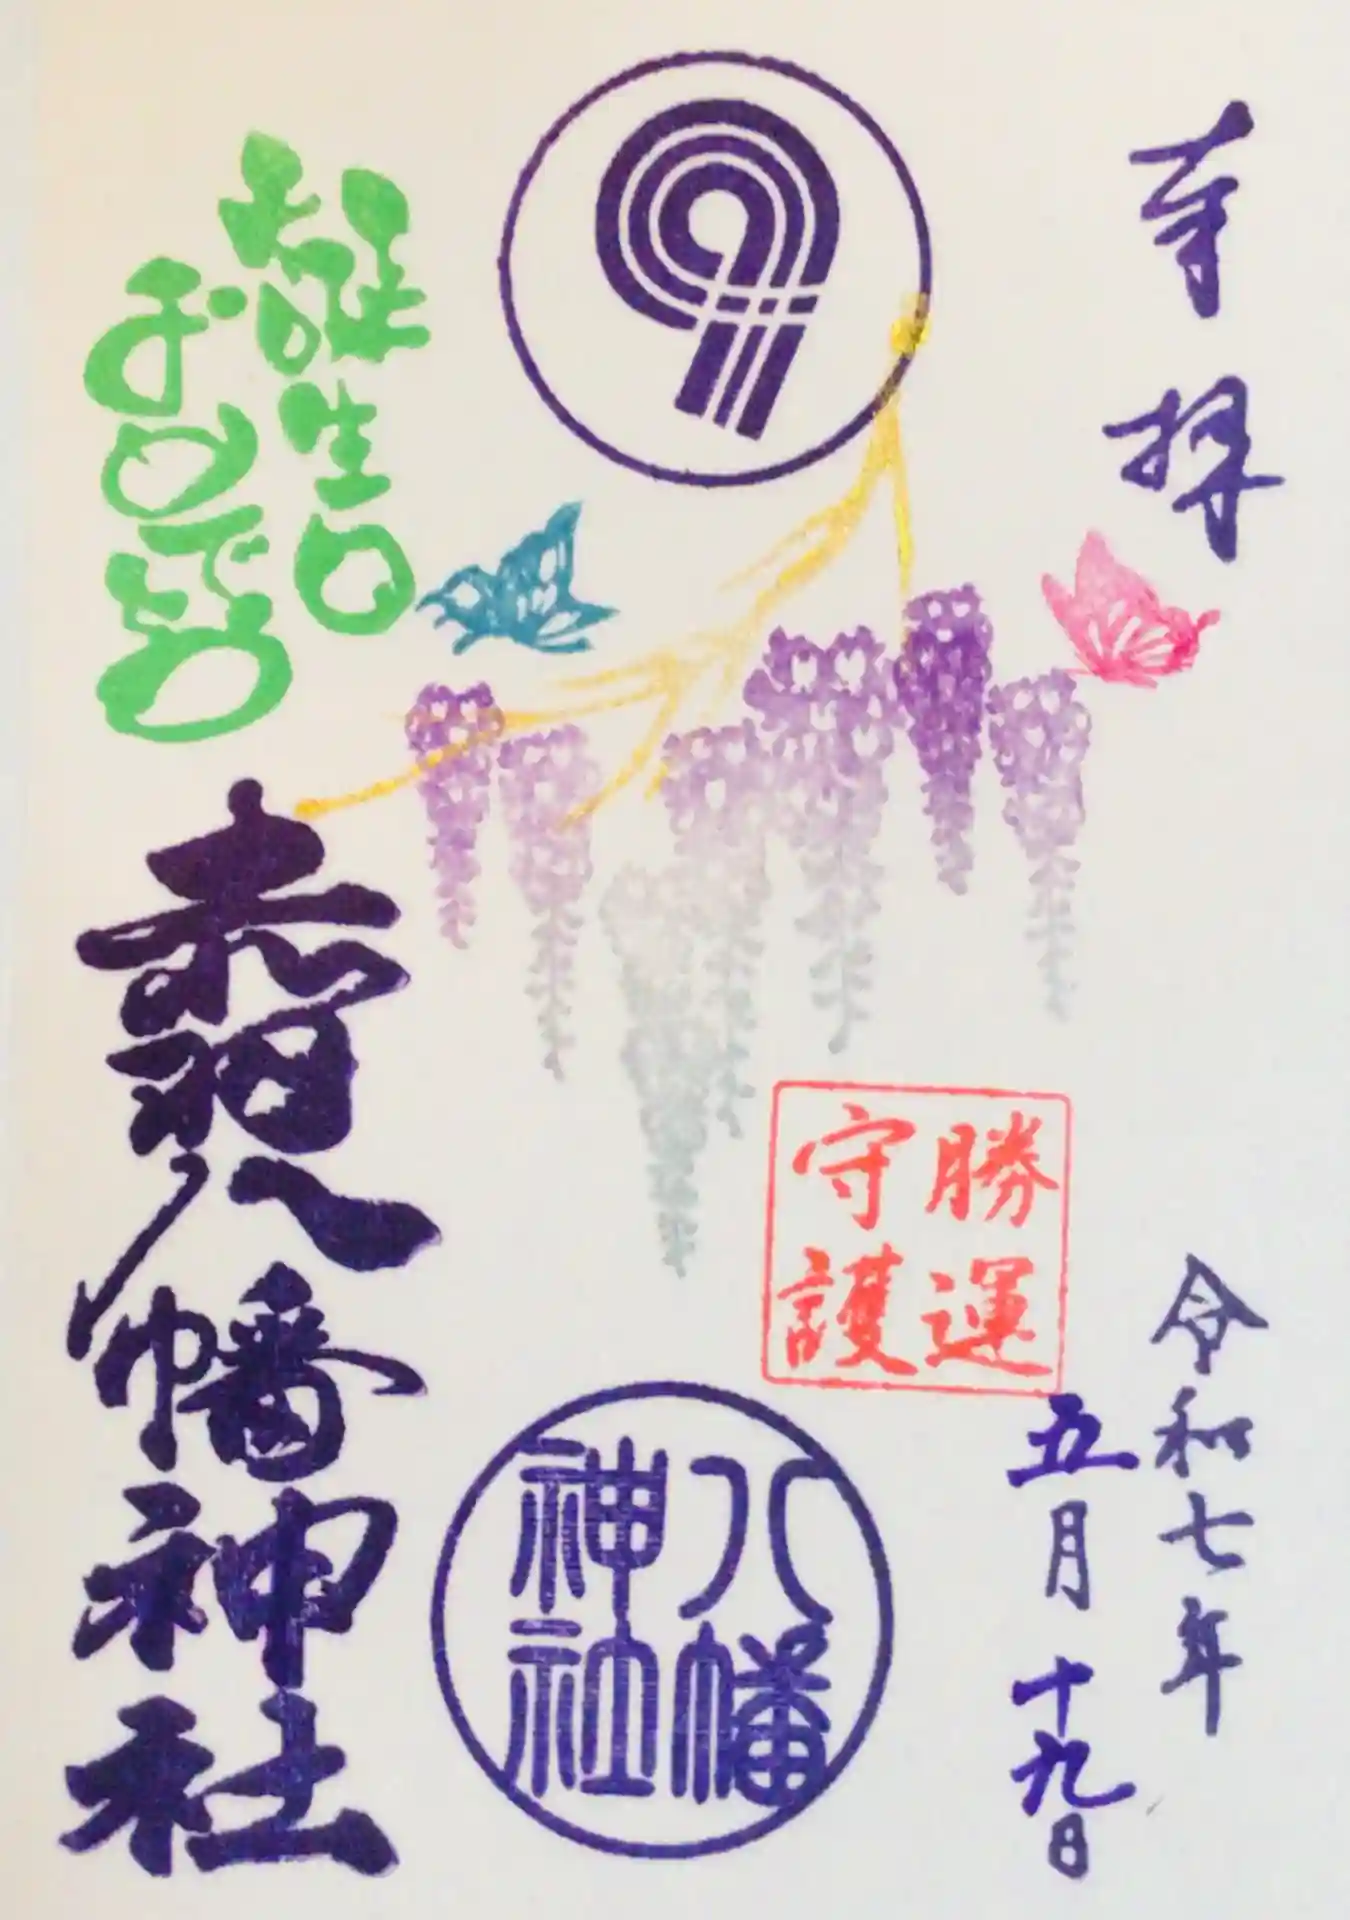 奉拝
令和七年
五月十九日
勝運
守護
八幡
神社
誕生日
おめでとう
赤羽八幡神社